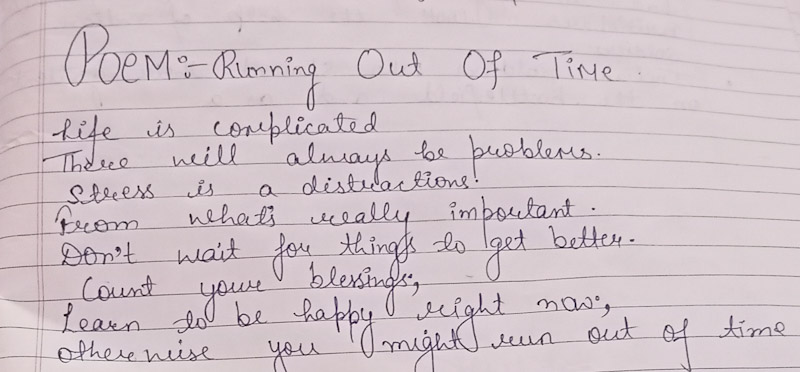 POEM:- Running Out Of Time
Life is complicated
There will always be problems.
Stress is a distractions!
from what's really important.
Don't wait for things to get better.
Count your blessings,
Learn to be happy right now,
otherwise you might run out of time